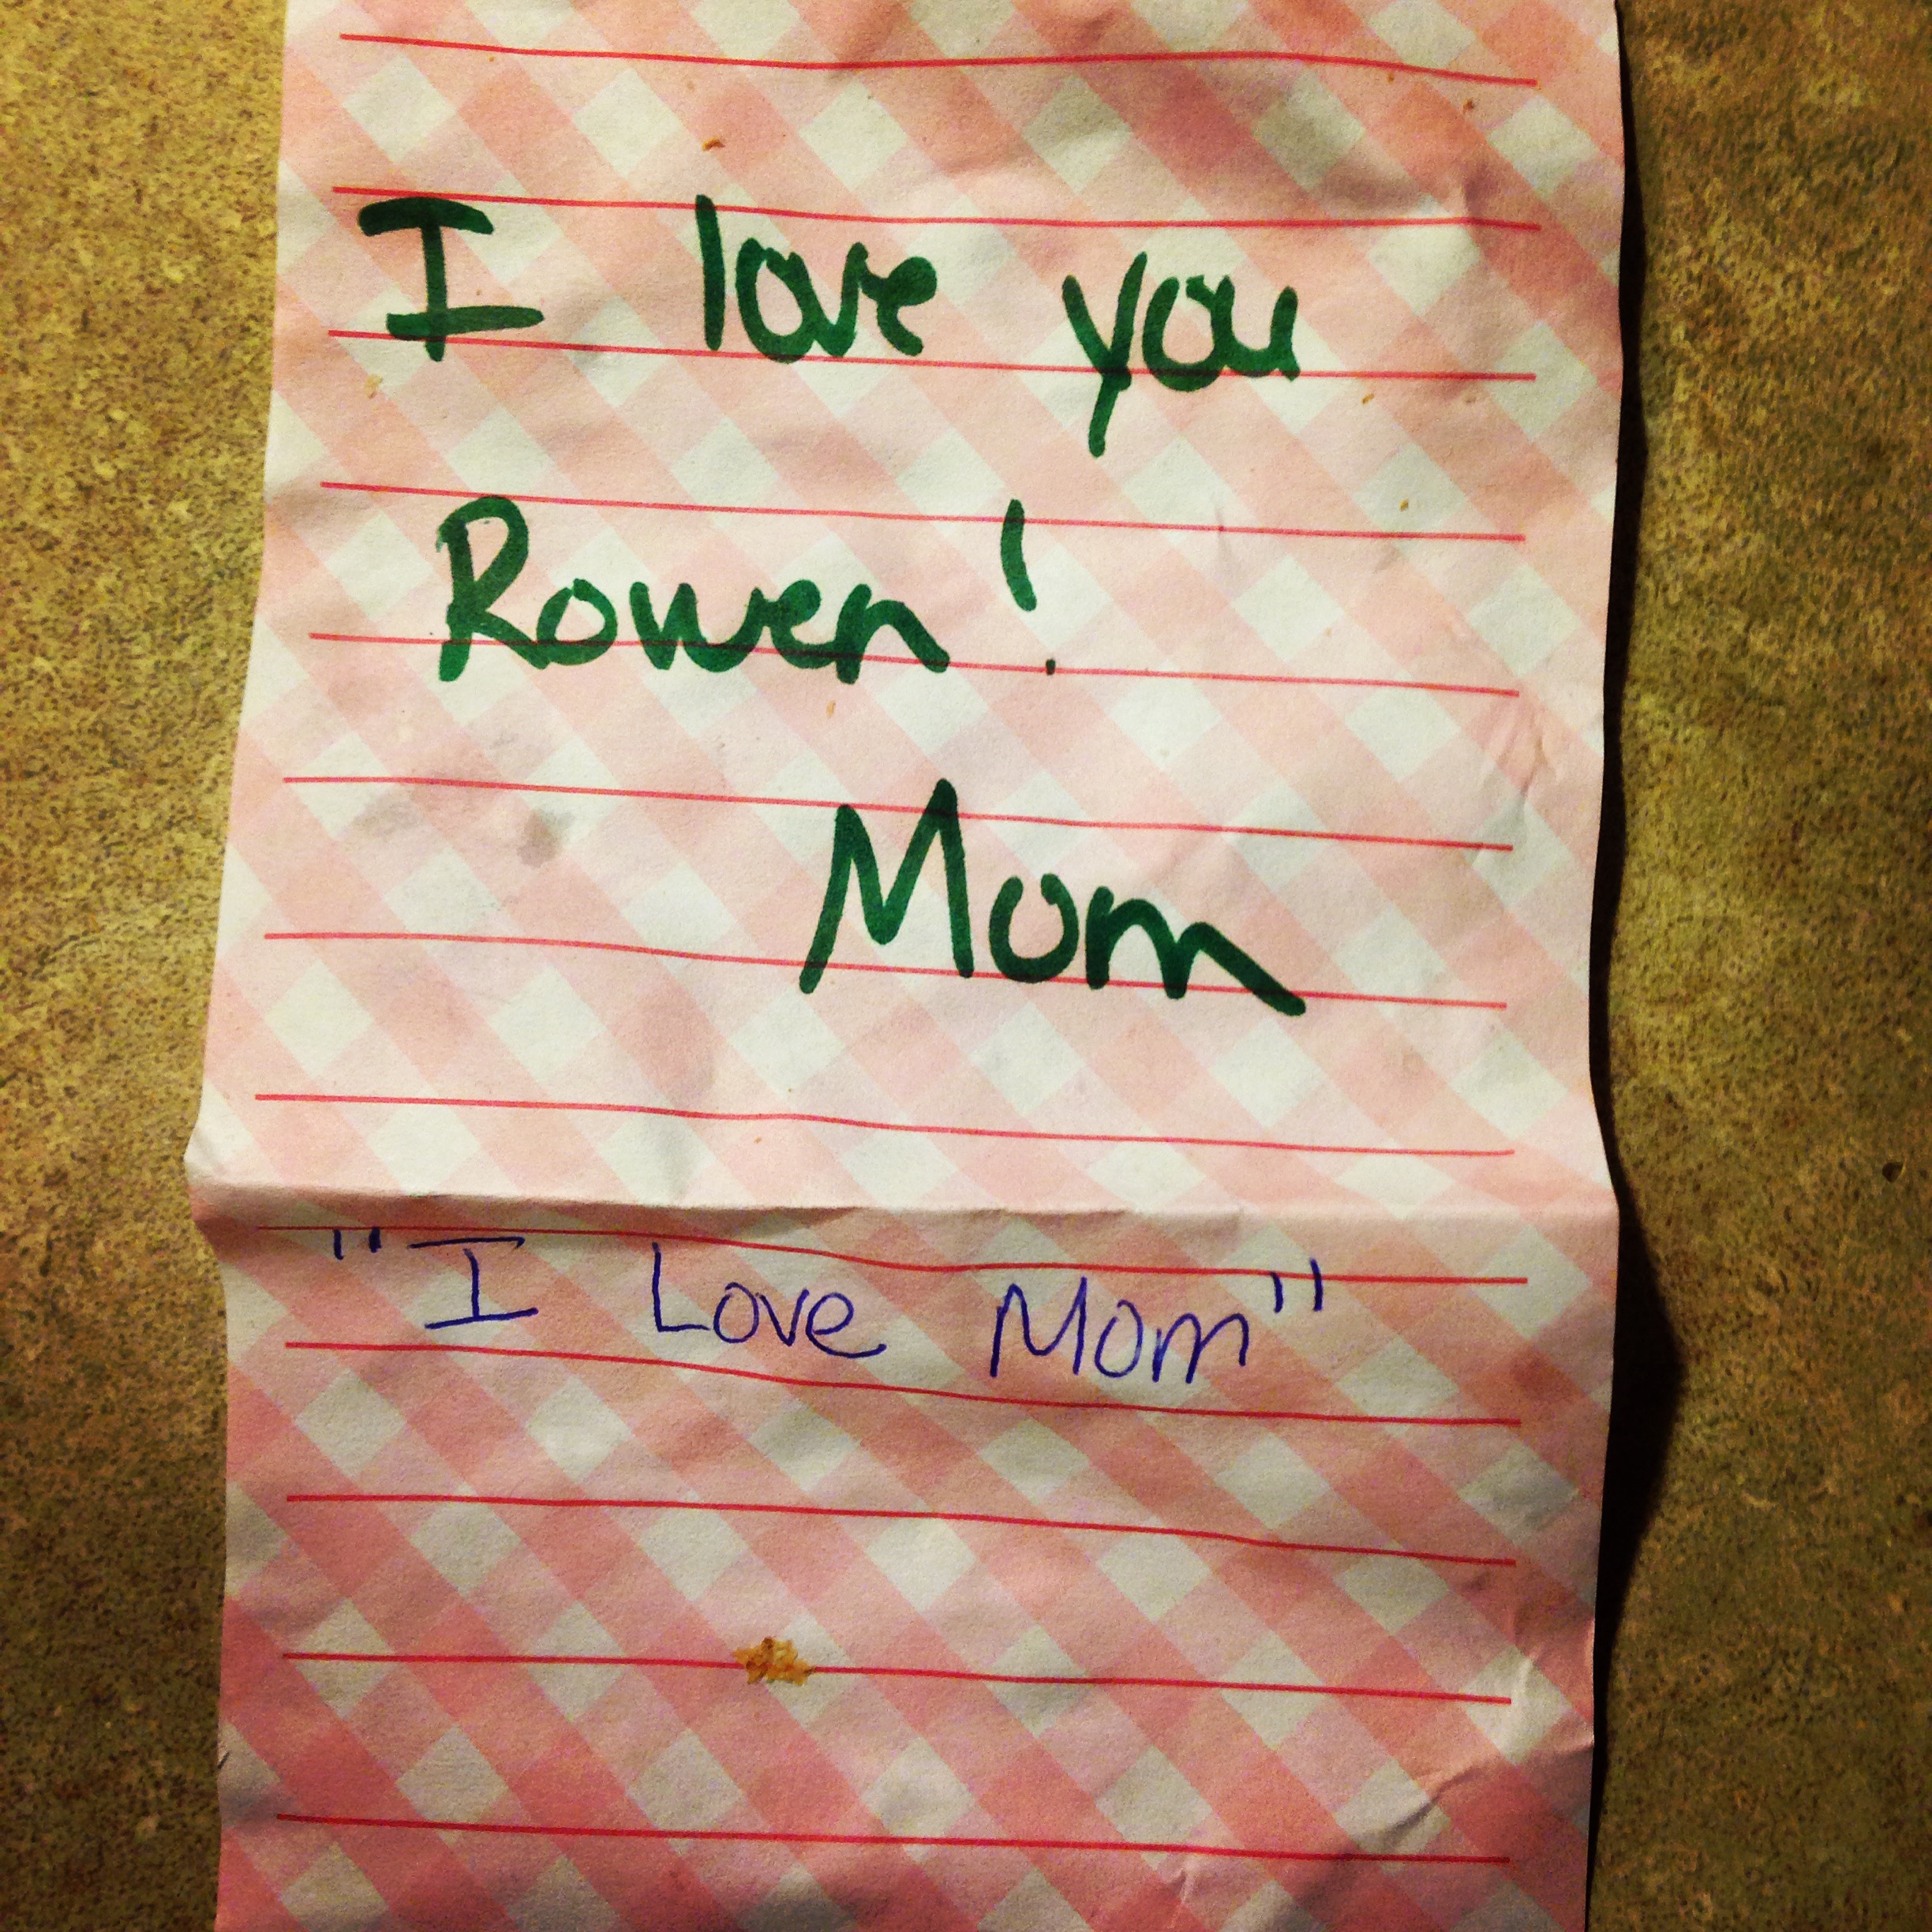 I love you
Rowen!
Mom
"I Love Mom"